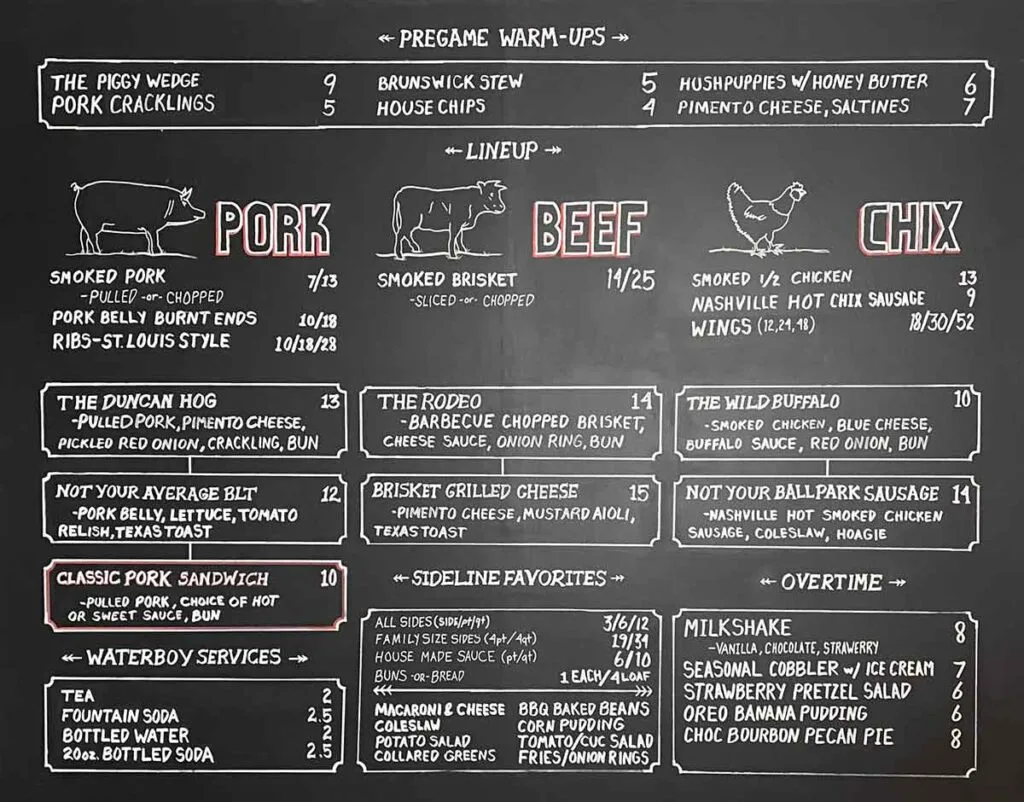 PREGAME WARM-UPS
THE PIGGY WEDGE 9
PORK CRACKLINGS 5
BRUNSWICK STEW 5
HOUSE CHIPS 4
HUSHPUPPIES W/HONEY BUTTER 6
PIMENTO CHEESE, SALTINES 7
LINEUP
PORK
SMOKED PORK 7/13
-PULLED -or- CHOPPED
PORK BELLY BURNT ENDS 10/18
RIBS-ST. LOUIS STYLE 10/18/28
BEEF
SMOKED BRISKET 14/25
-SLICED -or- CHOPPED
CHIX
SMOKED 1/2 CHICKEN 13
NASHVILLE HOT CHIX SAUSAGE 9
WINGS (12,24,48) 18/30/52
THE DUNCAN HOG 13
-PULLED PORK, PIMENTO CHEESE,
PICKLED RED ONION, CRACKLING, BUN
NOT YOUR AVERAGE BLT 12
-PORK BELLY, LETTUCE, TOMATO
RELISH, TEXAS TOAST
CLASSIC PORK SANDWICH 10
-PULLED PORK, CHOICE OF HOT
OR SWEET SAUCE, BUN
THE RODEO 14
-BARBECUE CHOPPED BRISKET,
CHEESE SAUCE, ONION RING, BUN
BRISKET GRILLED CHEESE 15
-PIMENTO CHEESE, MUSTARD AIOLI,
TEXAS TOAST
THE WILD BUFFALO 10
-SMOKED CHICKEN, BLUE CHEESE,
BUFFALO SAUCE, RED ONION, BUN
NOT YOUR BALLPARK SAUSAGE 14
-NASHVILLE HOT SMOKED CHICKEN
SAUSAGE, COLESLAW, HOAGIE
WATERBOY SERVICES
TEA 2
FOUNTAIN SODA 2.5
BOTTLED WATER 2
20oz. BOTTLED SODA 2.5
SIDELINE FAVORITES
ALL SIDES (SIDE/pt/qt) 3/6/12
FAMILY SIZE SIDES (4pt/4qt) 19/34
HOUSE MADE SAUCE (pt/qt) 6/10
BUNS -OR- BREAD 1 EACH/4 LOAF
MACARONI & CHEESE BBQ BAKED BEANS
COLESLAW CORN PUDDING
POTATO SALAD TOMATO/CUC SALAD
COLLARED GREENS FRIES/ONION RINGS
OVERTIME
MILKSHAKE 8
-VANILLA, CHOCOLATE, STRAWERRY
SEASONAL COBBLER w/ ICE CREAM 7
STRAWBERRY PRETZEL SALAD 6
OREO BANANA PUDDING 6
CHOC BOURBON PECAN PIE 8